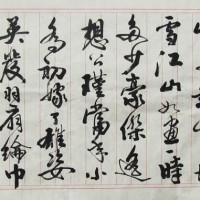 雪江山如畫一時
多少豪傑遙
想公瑾當年小
喬初嫁了雄姿
英發羽扇綸巾